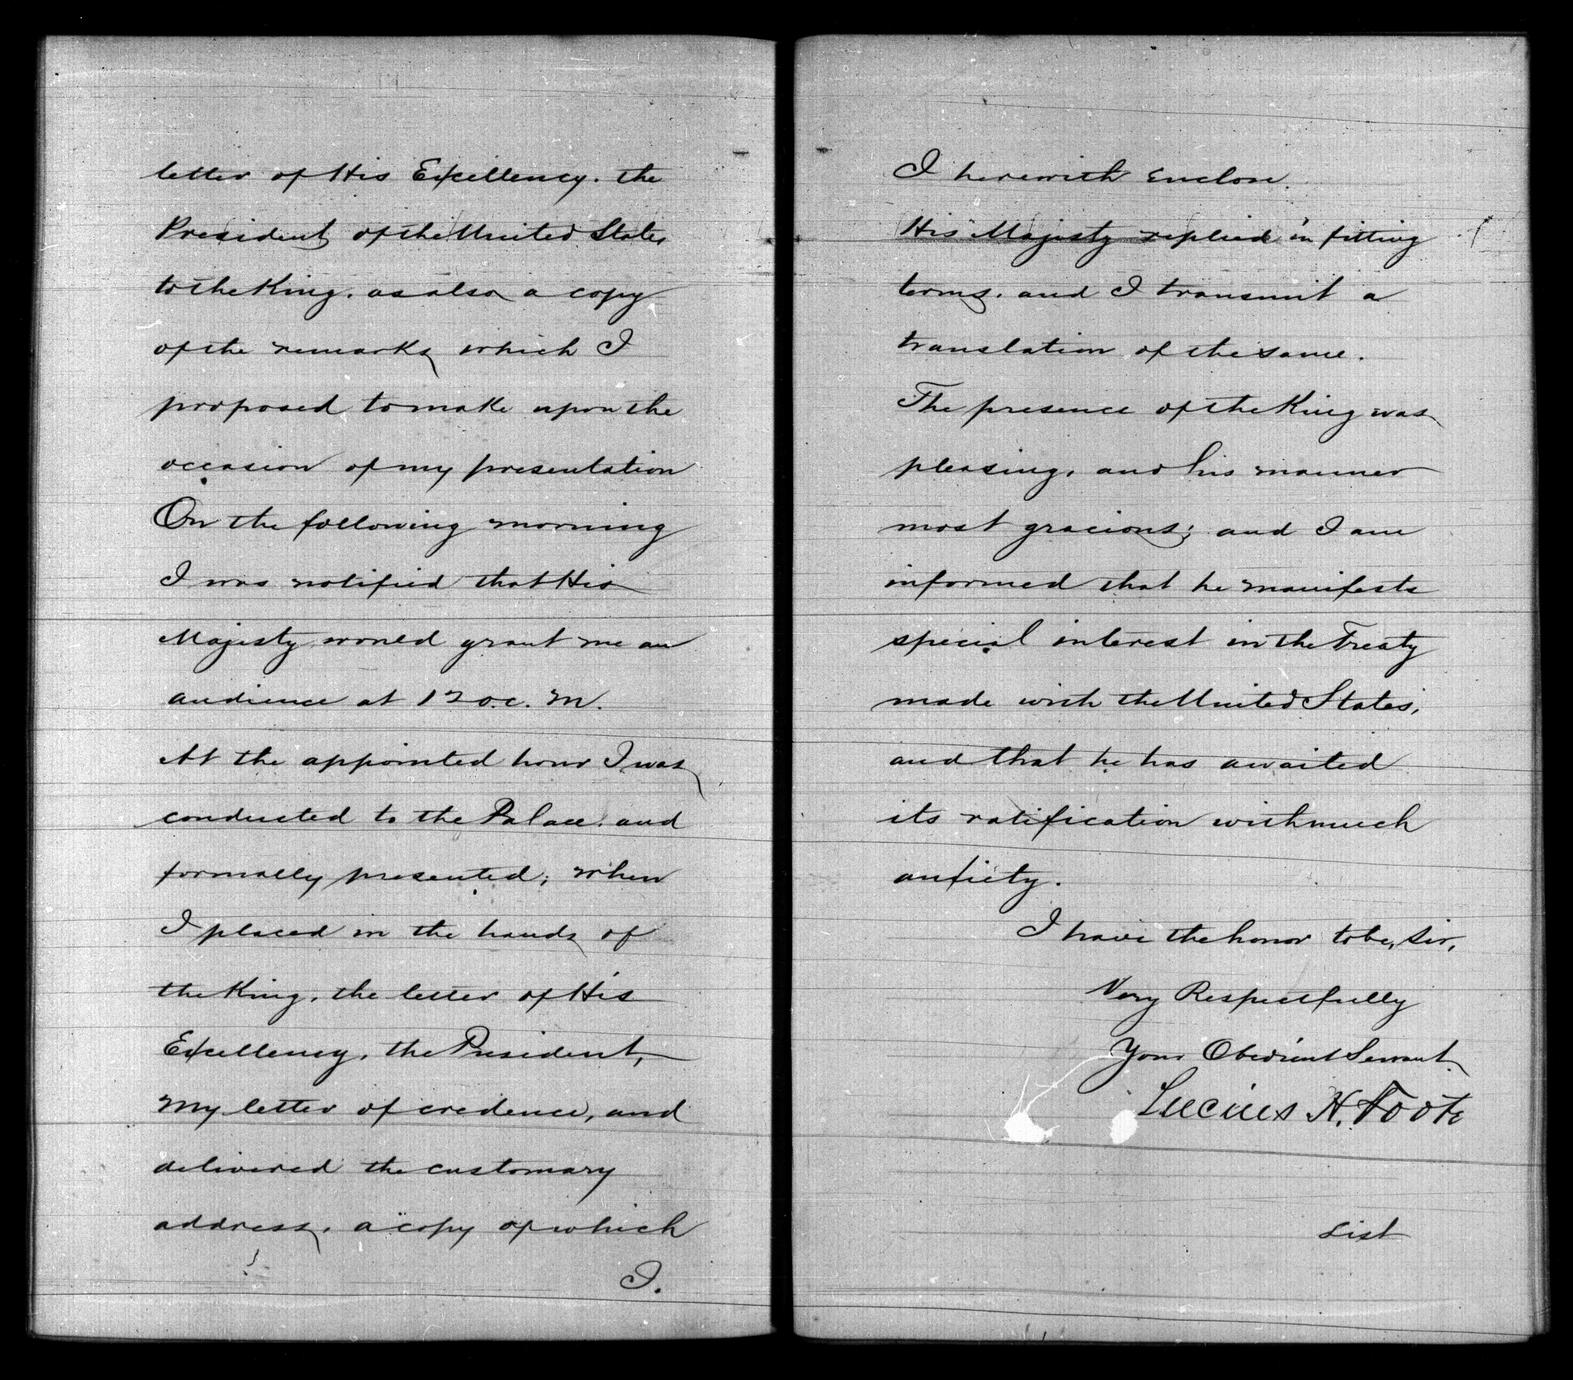 letter of His Excellency, the
President of the United States
to the King, as also a copy
of the remarks which I
proposed to make upon the
occasion of my presentation
On the following morning
I was notified that His
Majesty would grant me an
audience at 12 o.c. M.
At the appointed hour I was
conducted to the Palace, and
formally presented; when
I placed in the hands of
the King, the letter of His
Excellency, the President,
my letter of credence, and
delivered the customary
address, a copy of which
I.
I herewith enclose.
His Majesty replied in fitting
terms, and I transmit a
translation of the same.
The presence of the King was
pleasing, and his manner
most gracious; and I am
informed that he manifests
special interest in the Treaty
made with the United States,
and that he has awaited
its ratification with much
anxiety.
I have the honor to be, Sir,
Very Respectfully
Your Obedient Servant
Lucius H. Foote
List